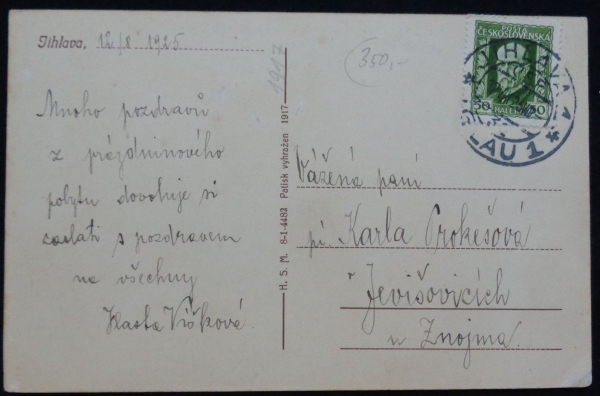 Jihlava, 12/8 1925
Mnoho pozdravů
z prázdninového
pobytu dovoluje si
zaslati s pozdravem
na všechny
Vlasta Víšková.
1917
350,-
H. S. M. 8-1-4482 Patisk vyhražen 1917.
POŠTA
ČESKOSLOVENSKÁ
50 50
HALÉŘŮ
JIHLAVA 1
LAU 1
Vážená paní
pí. Karla Prokešová
v Jevišovicích
u Znojma.